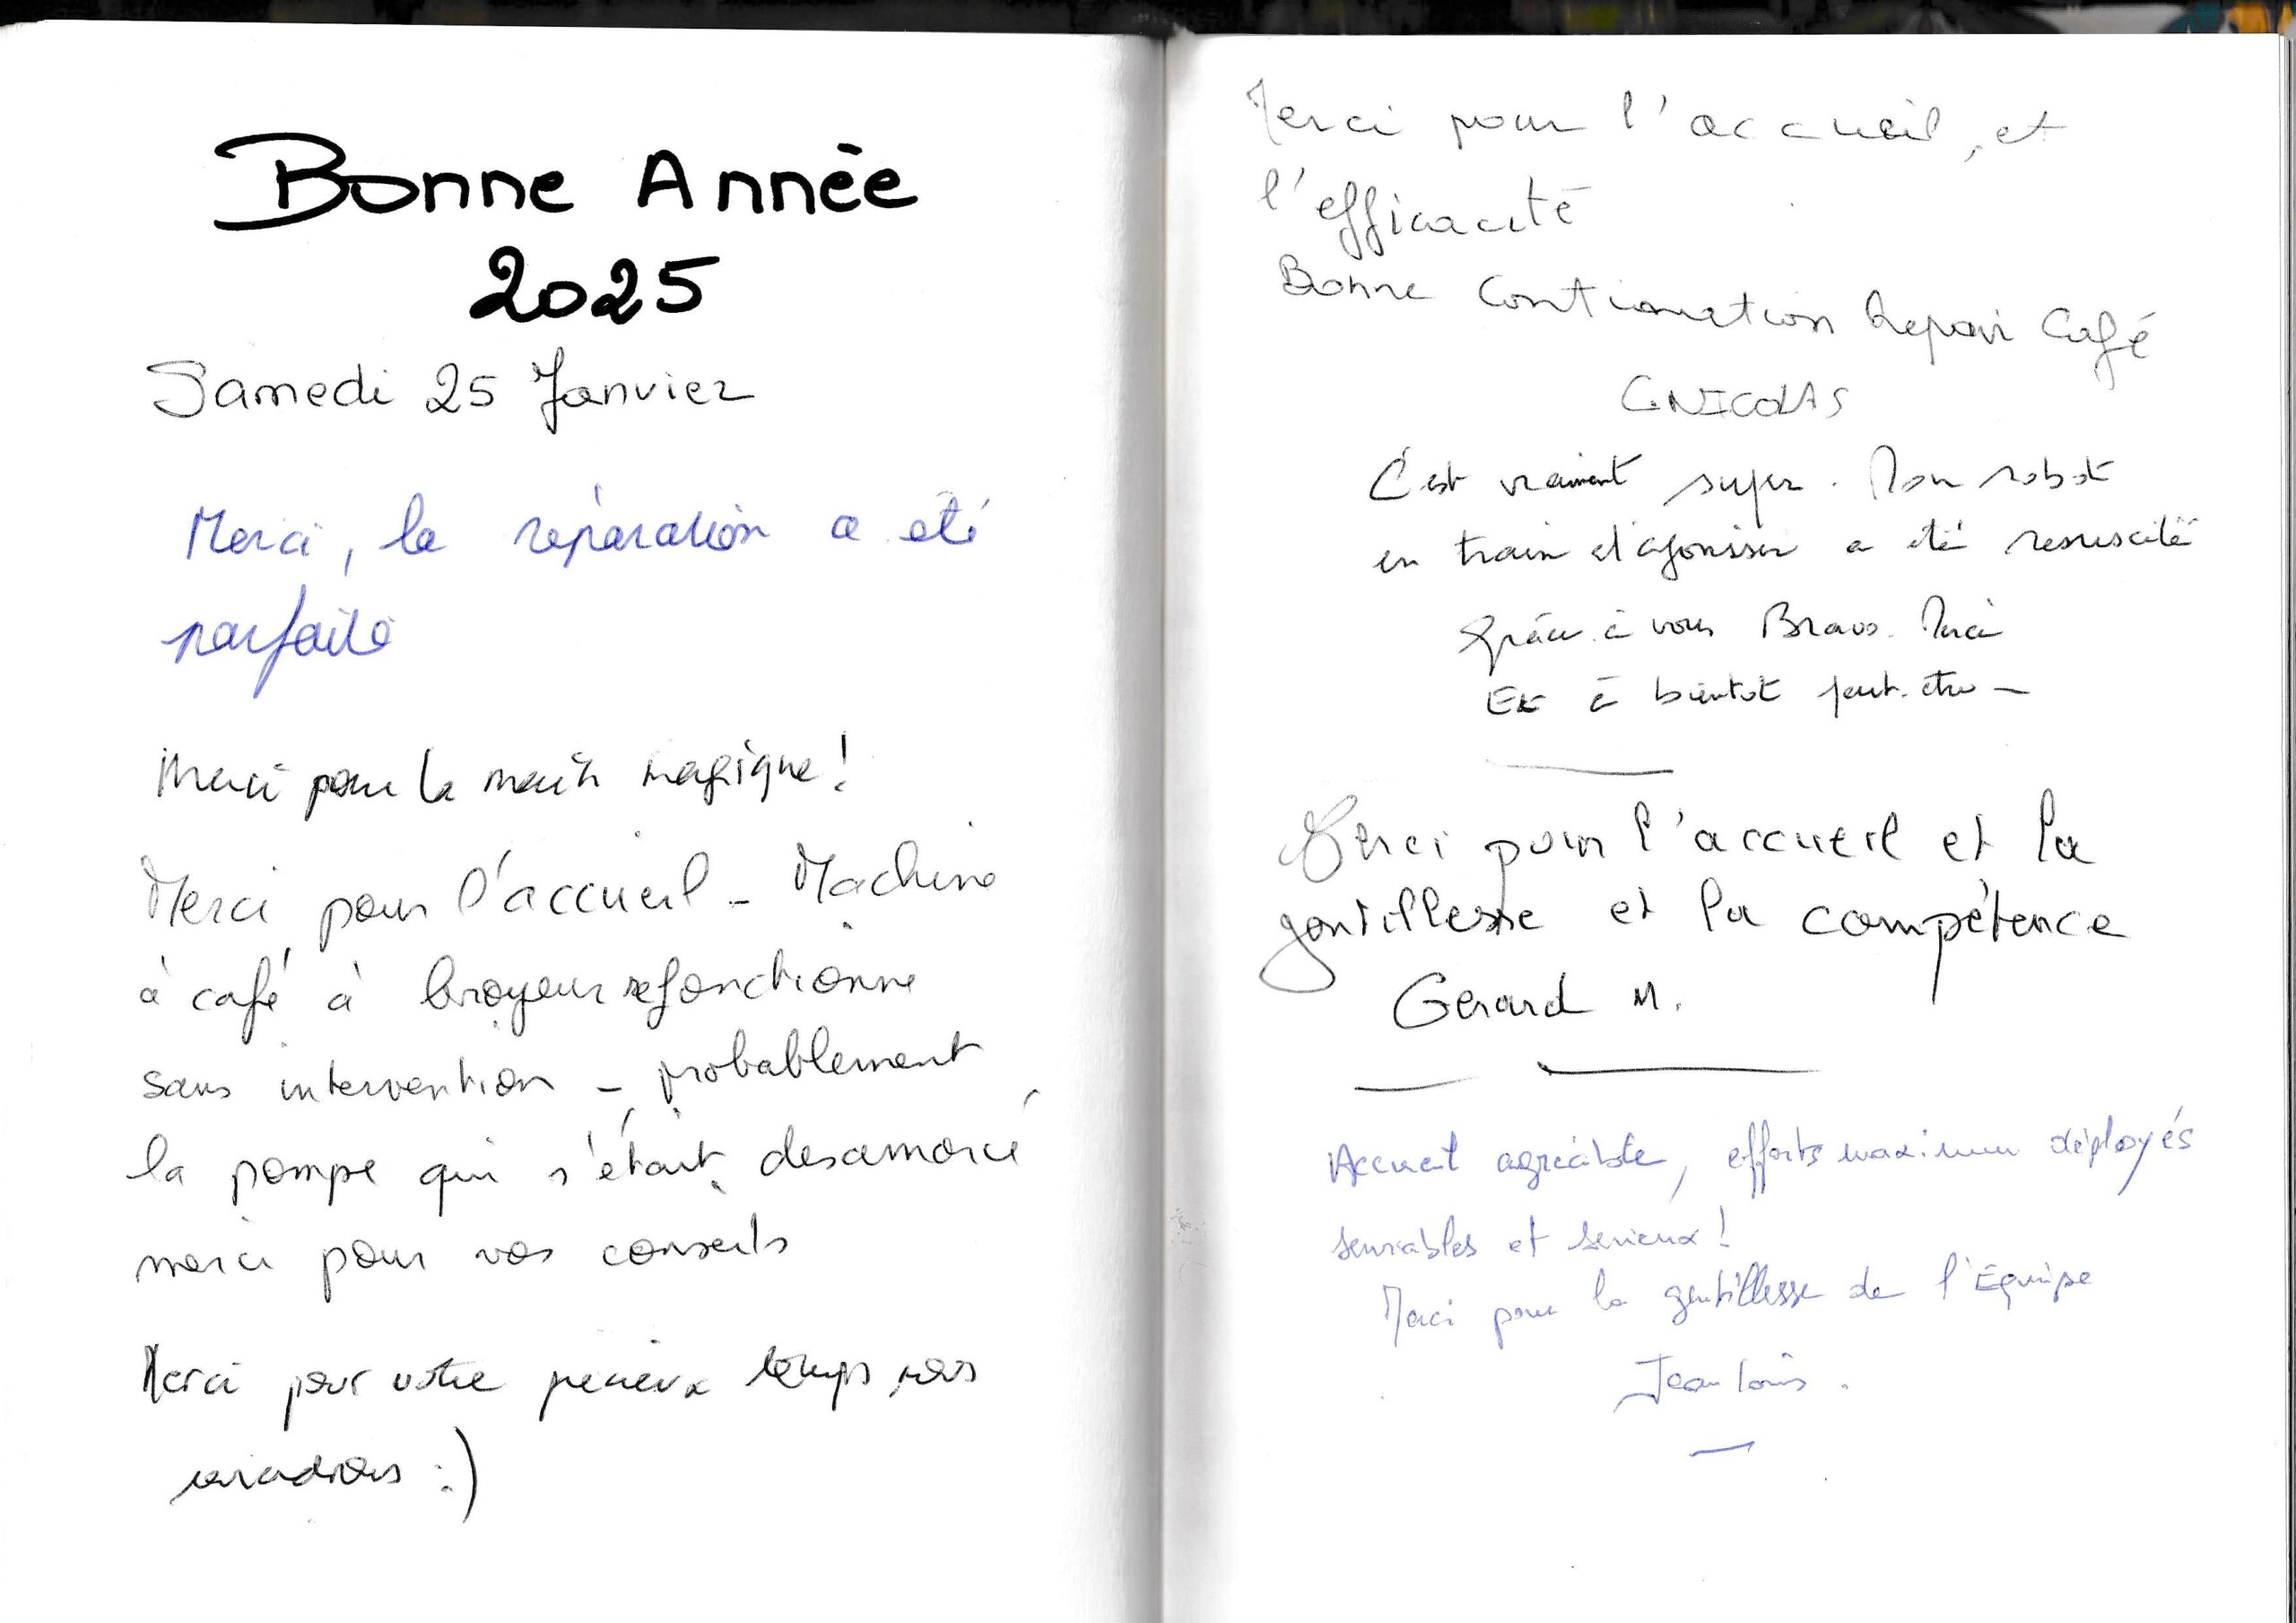 Bonne Année
2025
Samedi 25 Janvier
Merci, la réparation a été
parfaite
Merci pour la main magique !
Merci pour l'accueil - Machine
à café à broyeur refonctionne
sans intervention - probablement
la pompe qui s'était désamorcé
merci pour vos conseils
Merci pour votre précieux temps, nos
:)
Merci pour l'accueil, et
l'efficacité
Bonne Continuation Repair Café
C.NICOLAS
C'est vraiment super. Mon robot
en train d'agoniser a été ressuscité
Grâce à vous Bravo. Merci
Et à bientôt peut-être -
Merci pour l'accueil et la
gentillesse et la compétence
Gérard M.
Accueil agréable, efforts maximum déployés
serviables et sérieux !
Merci pour la gentillesse de l'Equipe
Jean Louis.